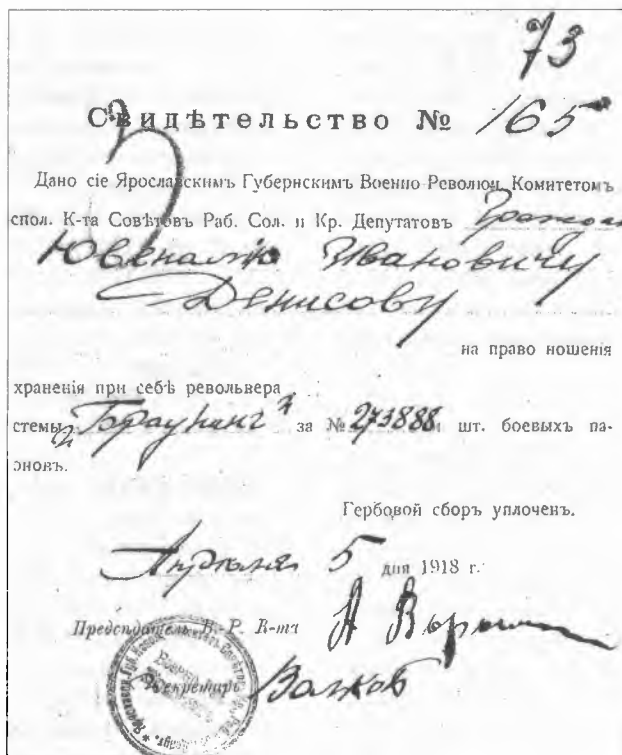 73
Свидѣтельство № 165
Дано сіе Ярославскимъ Губернскимъ Военно Революц. Комитетомъ
спол. К-та Совѣтовъ Раб. Сол. и Кр. Депутатовъ
Ювеналію Ивановичу
Денисову
на право ношенія
храненія при себѣ револьвера
стемы "Браунинг" за № 273888 шт. боевыхъ па-
оновъ.
Гербовой сборъ уплоченъ.
Апрѣля 5 дня 1918 г.
Предсѣдатель В. Р. К-та
Секретарь